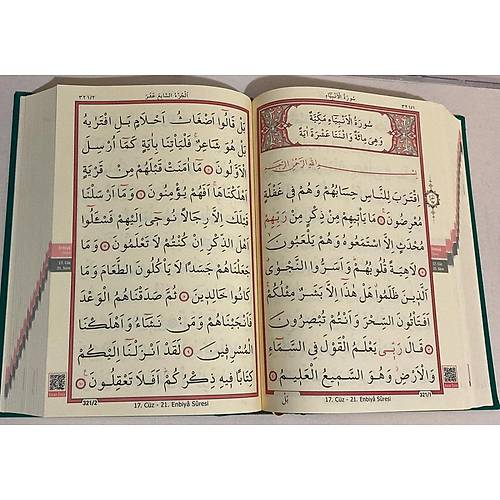 سُورَةُ الْاَنْبِيَاءِ
٣٢١/١
سُورَةُ الْاَنْبِيَاءِ مَكِّيَّةٌ
وَهِىَ مِائَةٌ وَاثْنَتَا عَشْرَةَ اٰيَةً
بِسْمِ اللّٰهِ الرَّحْمٰنِ الرَّحِيمِ
اِقْتَرَبَ لِلنَّاسِ حِسَابُهُمْ وَهُمْ فِى غَفْلَةٍ
مُعْرِضُونَ ۞ مَا يَأْتِيهِمْ مِنْ ذِكْرٍ مِنْ رَبِّهِمْ
مُحْدَثٍ اِلَّا اسْتَمَعُوهُ وَهُمْ يَلْعَبُونَ ۞
لَاهِيَةً قُلُوبُهُمْ وَاَسَرُّوا النَّجْوَى
الَّذِينَ ظَلَمُوا هَلْ هٰذَا اِلَّا بَشَرٌ مِثْلُكُمْ
اَفَتَأْتُونَ السِّحْرَ وَاَنْتُمْ تُبْصِرُونَ ۞
قَالَ رَبِّى يَعْلَمُ الْقَوْلَ فِى السَّمَاءِ
وَالْاَرْضِ وَهُوَ السَّمِيعُ الْعَلِيمُ ۞
بَلْ
17. Cüz - 21. Enbiyâ Sûresi
321/1
اَلْجُزْءُ السَّابِعَ عَشَرَ
٣٢١/٢
بَلْ قَالُوا اَضْغَاثُ اَحْلَامٍ بَلِ افْتَرٰيهُ
بَلْ هُوَ شَاعِرٌ فَلْيَأْتِنَا بِاٰيَةٍ كَمَا اُرْسِلَ
الْاَوَّلُونَ ۞ مَا اٰمَنَتْ قَبْلَهُمْ مِنْ قَرْيَةٍ
اَهْلَكْنَاهَا اَفَهُمْ يُؤْمِنُونَ ۞ وَمَا اَرْسَلْنَا
قَبْلَكَ اِلَّا رِجَالًا نُوحِى اِلَيْهِمْ فَسْـَٔلُوا
اَهْلَ الذِّكْرِ اِنْ كُنْتُمْ لَا تَعْلَمُونَ ۞ وَمَا
جَعَلْنَاهُمْ جَسَدًا لَا يَأْكُلُونَ الطَّعَامَ وَمَا
كَانُوا خَالِدِينَ ۞ ثُمَّ صَدَقْنَاهُمُ الْوَعْدَ
فَاَنْجَيْنَاهُمْ وَمَنْ نَشَاءُ وَاَهْلَكْنَا
الْمُسْرِفِينَ ۞ لَقَدْ اَنْزَلْنَا اِلَيْكُمْ
كِتَابًا فِيهِ ذِكْرُكُمْ اَفَلَا تَعْقِلُونَ ۞
321/2
17. Cüz - 21. Enbiyâ Sûresi